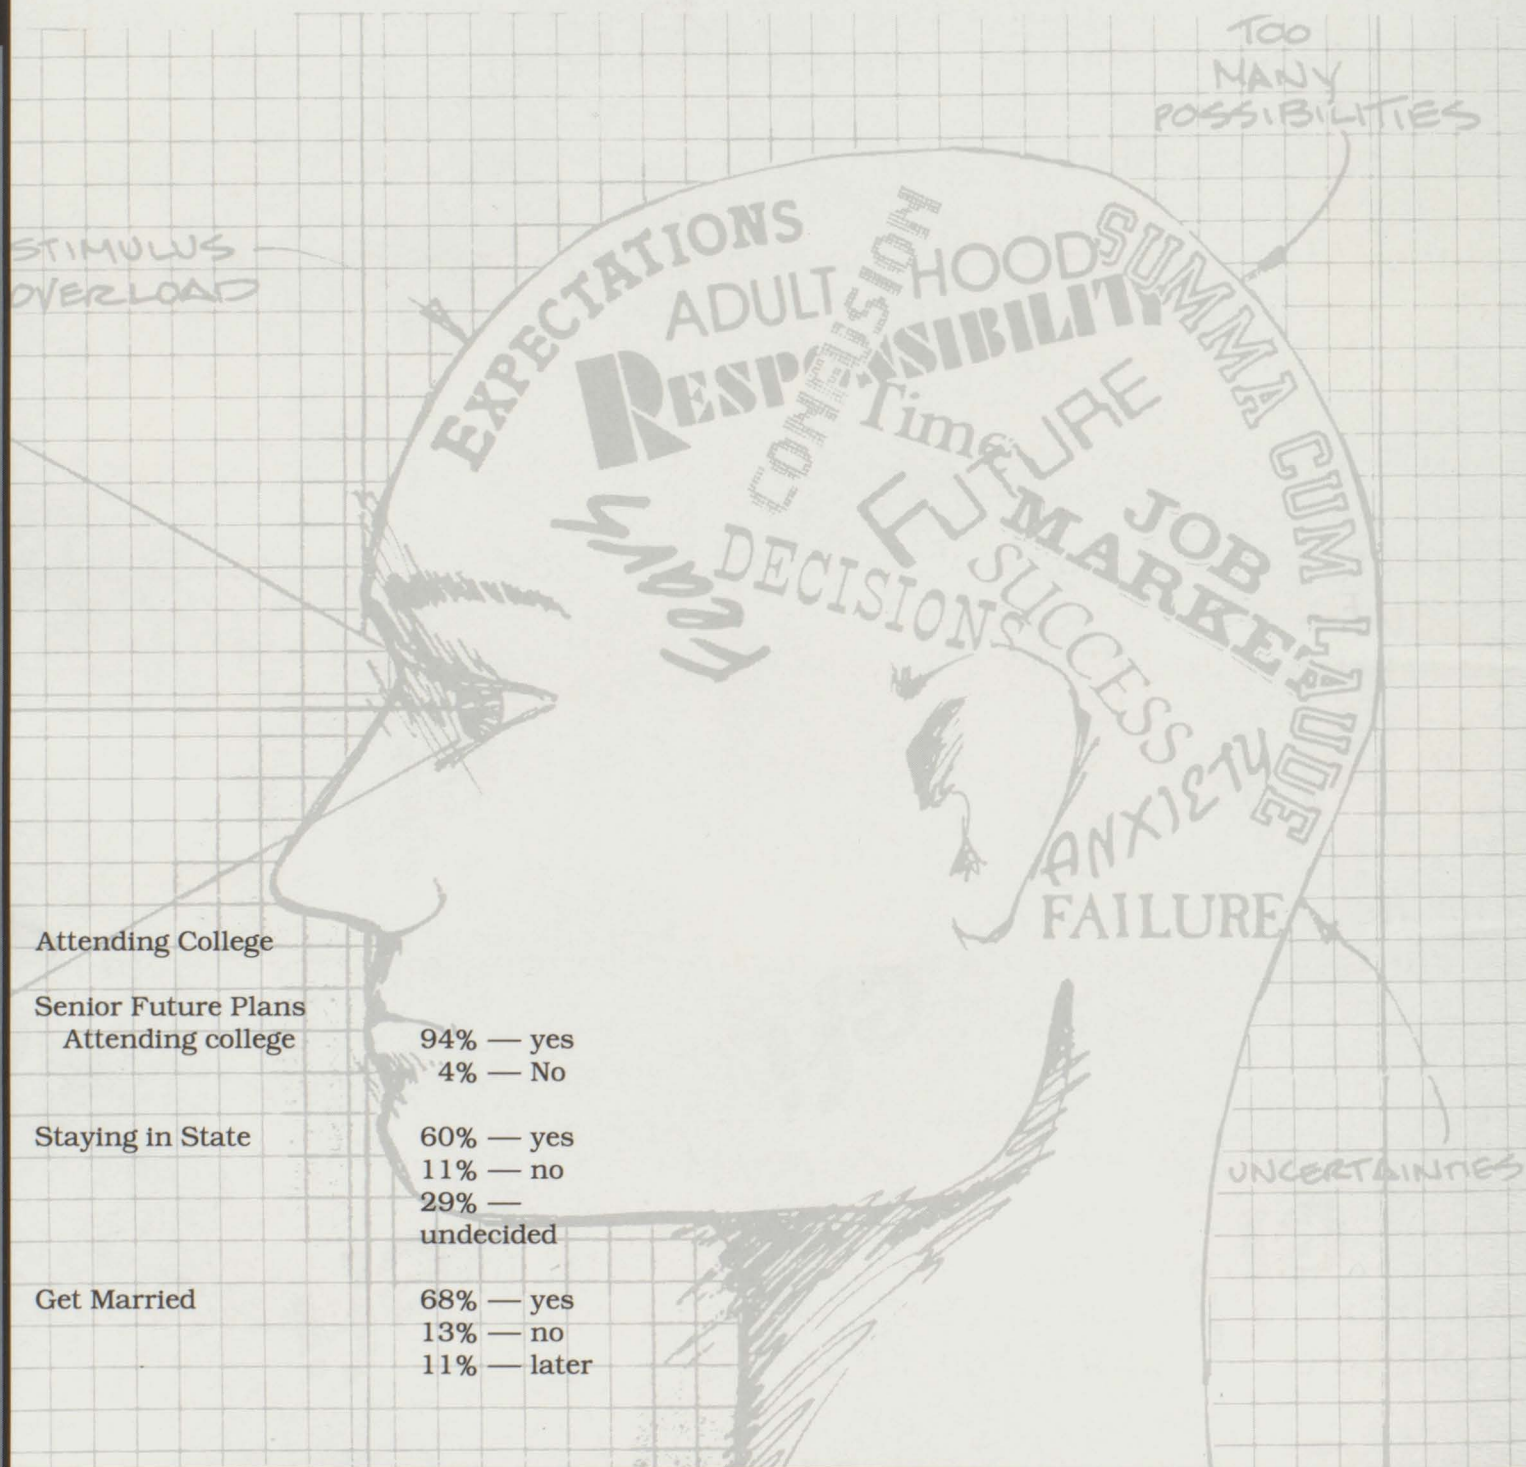 TOO
MANY
POSSIBILITIES
STIMULUS
OVERLOAD
EXPECTATIONS
ADULTHOOD
CONFUSION
RESPONSIBILITY
SUMMA CUM LAUDE
Time
FUTURE
JOB
MARKET
Fear
DECISIONS
SUCCESS
ANXIETY
FAILURE
UNCERTAINTIES
Attending College
Senior Future Plans
Attending college 94% — yes
4% — No
Staying in State 60% — yes
11% — no
29% —
undecided
Get Married 68% — yes
13% — no
11% — later